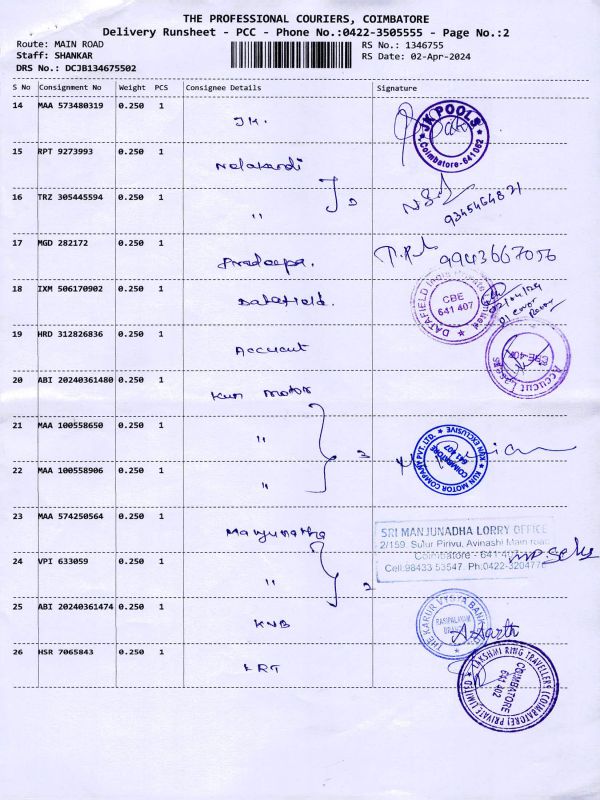 THE PROFESSIONAL COURIERS, COIMBATORE
Delivery Runsheet - PCC - Phone No.:0422-3505555 - Page No.:2
Route: MAIN ROAD RS No.: 1346755
Staff: SHANKAR RS Date: 02-Apr-2024
DRS No.: DCJB134675502
S No Consignment No Weight PCS Consignee Details Signature
14 MAA 573480319 0.250 1 JK. JK POOLS Coimbatore-641062
15 RPT 9273993 0.250 1
16 TRZ 305445594 0.250 1 " 2 9345464821
17 MGD 282172 0.250 1 Pradeepa. 9943667056
18 IXM 506170902 0.250 1 Datafield. DATAFIELD India Private Limited CBE 641 407 02/04/24 01 cover
19 HRD 312826836 0.250 1 Accucut Accucut Lasers CBE-407
20 ABI 20240361480 0.250 1 Kun Motor
21 MAA 100558650 0.250 1 " 3 KUN MOTOR COMPANY PVT. LTD. KUN EXCLUSIVE COIMBATORE 641 407
22 MAA 100558906 0.250 1 "
23 MAA 574250564 0.250 1 Manjunatha SRI MANJUNADHA LORRY OFFICE
2/159, Sulur Pirivu, Avinashi Main road
Coimbatore - 641 407
24 VPI 633059 0.250 1 " 2 Cell:98433 53547. Ph:0422-3204776
25 ABI 20240361474 0.250 1 KVB THE KARUR VYSYA BANK
26 HSR 7065843 0.250 1 LRT LAKSHMI RING TRAVELLERS (COIMBATORE) PRIVATE LIMITED COIMBATORE 641 402